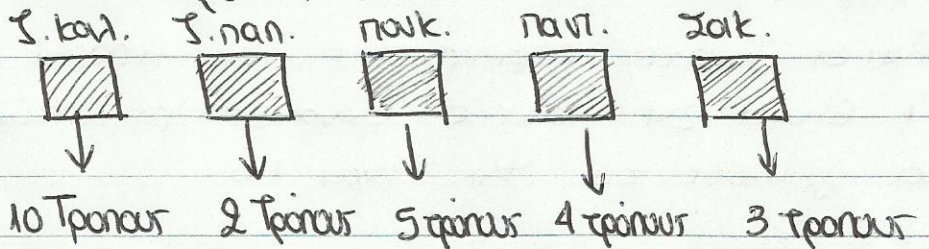 ζ.καλ. ζ.παπ. πουκ. παντ. σακ.
10 Τροπους 2 Τρόπους 5 τρόπους 4 τρόπους 3 τροπους